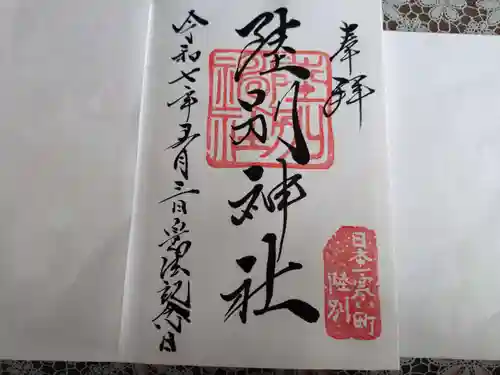 奉拝
陸別神社
陸別神社
令和七年五月三日憲法記念日
日本一寒い町
陸別